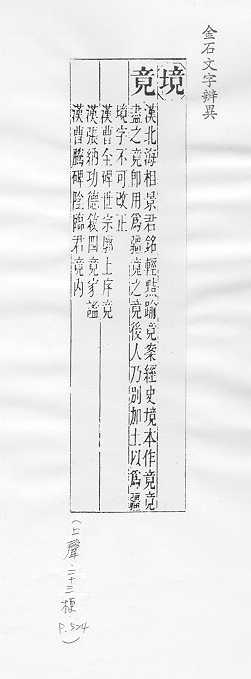 金石文字辨異
境
竟
漢北海相景君銘輕黠踰竟案經史境本作竟竟
盡之竟卽用爲疆竟之竟後人乃別加土以爲疆
境字不可改正
漢曹全碑世宗廓土序竟
漢張納功德敘四竟家謐
漢曹騰碑陰臨君竟內
(上聲.二十三梗
P.524)